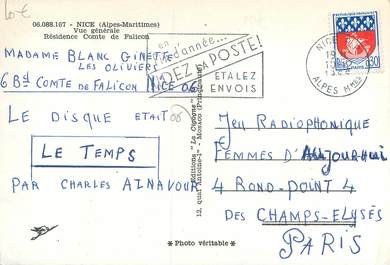 Lot
06.088.167 - NICE (Alpes-Maritimes)
Vue générale
Résidence Comte de Falicon
MADAME BLANC GINETTE
LES OLIVIERS
6 Bd COMTE DE FALICON NICE 06
LE DISQUE ETAIT
LE TEMPS
PAR CHARLES AZNAVOUR
* Photo véritable *
Editions "La Cigogne"
12, quai Antoine-1er - Monaco (Principauté)
en
d'année...
DEZ LA POSTE!
ETALEZ
ENVOIS
NICE
ALPES Mmes
0,30
JEU RADIOPHONIQUE
FEMMES D'AUJOURHUI
4 ROND-POINT 4
DES CHAMPS-ELYSÉS
PARIS